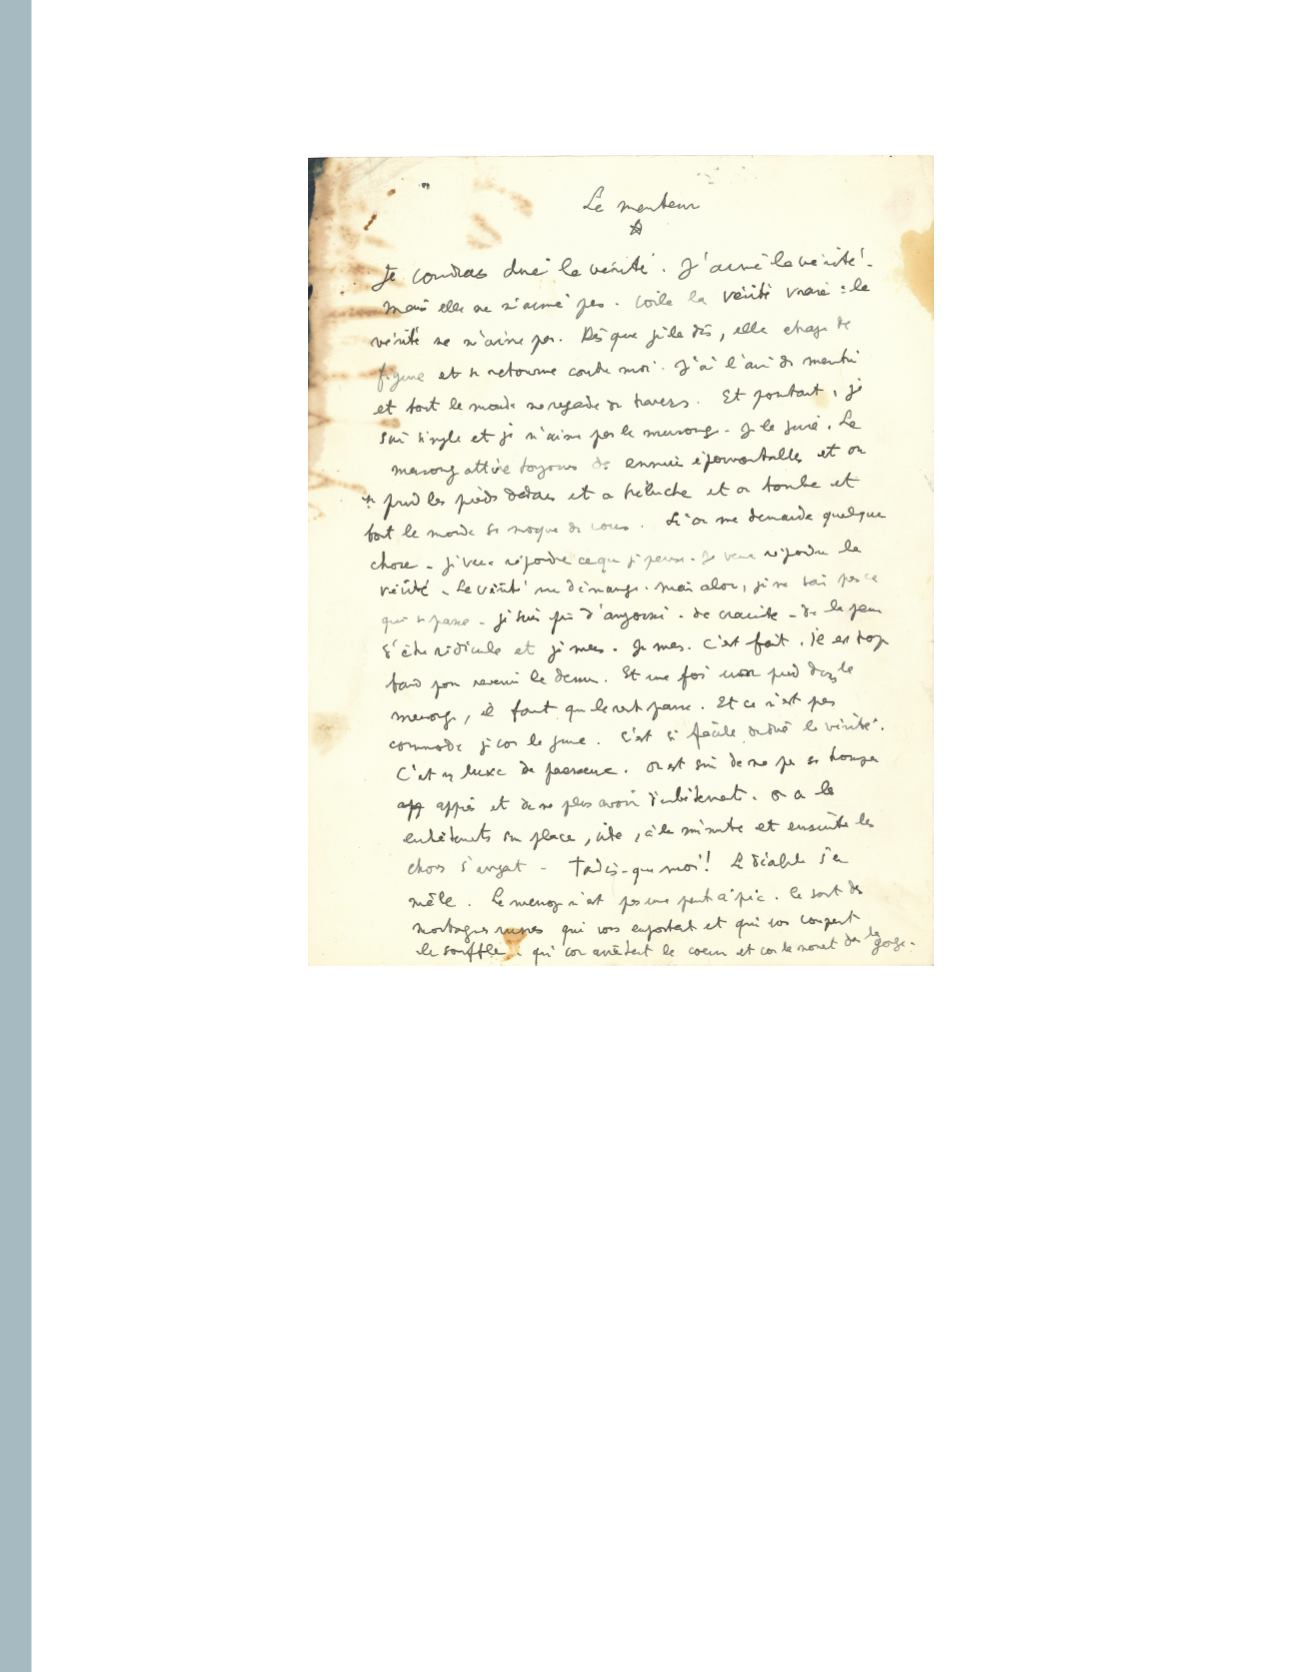 Le menteur
Je voudrais dire la vérité. J'aime la vérité.
Mais elle ne m'aime pas. Voila la vérité vraie : la
vérité ne m'aime pas. Dès que je la dis, elle change de
figure et se retourne contre moi. J'ai l'air de mentir
et tout le monde me regarde de travers. Et pourtant, je
suis simple et je n'aime pas le mensonge. Je le jure. Le
mensonge attire toujours des ennuis épouvantables et on
se prend les pieds dedans et on trébuche et on tombe et
tout le monde se moque de vous. Si on me demande quelque
chose - je veux répondre ce que je pense. Je veux répondre la
vérité. La vérité me démange. Mais alors, je ne sais pas ce
qui se passe - je suis pris d'angoisse - de crainte - de la peur
d'être ridicule et je mens. Je mens. C'est fait. Il est trop
tard pour revenir là dessus. Et une fois un pied dans le
mensonge, il faut que le reste passe. Et ce n'est pas
commode je vous le jure. C'est si facile de dire la vérité.
C'est un luxe de paresseux. On est sûr de ne pas se tromper
après et de ne plus avoir d'embêtements. On a les
embêtements sur place, vite, à la minute et ensuite les
choses s'arrangent - Tandis-que moi !! Le diable s'en
mêle. Le mensonge n'est pas une pente à pic. Ce sont des
montagnes russes qui vous emportent et qui vous coupent
le souffle, qui vous arrêtent le coeur et vous le nouent dans la gorge.